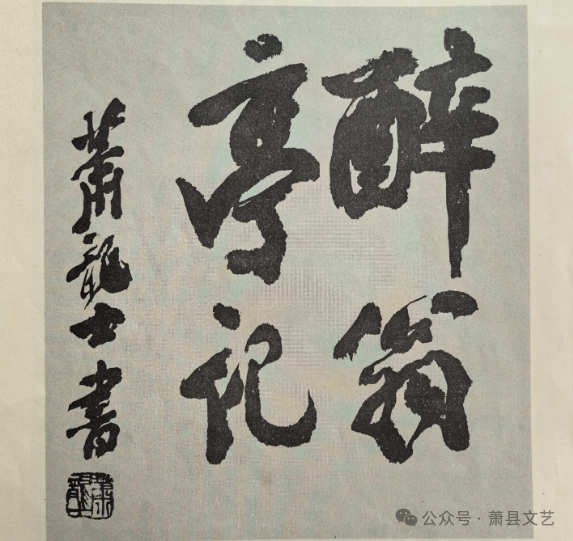 醉翁
亭记
萧龙士书
萧龙士
公众号·萧县文艺